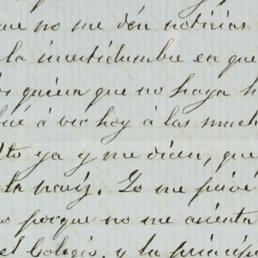 que no me den noticias
la incertidumbre en que
quiera que no haya h
á ver hoy á las much
ya y me dicen, que
la nariz. Yo me privé
porque no me asienta
el Colegio, y la princip